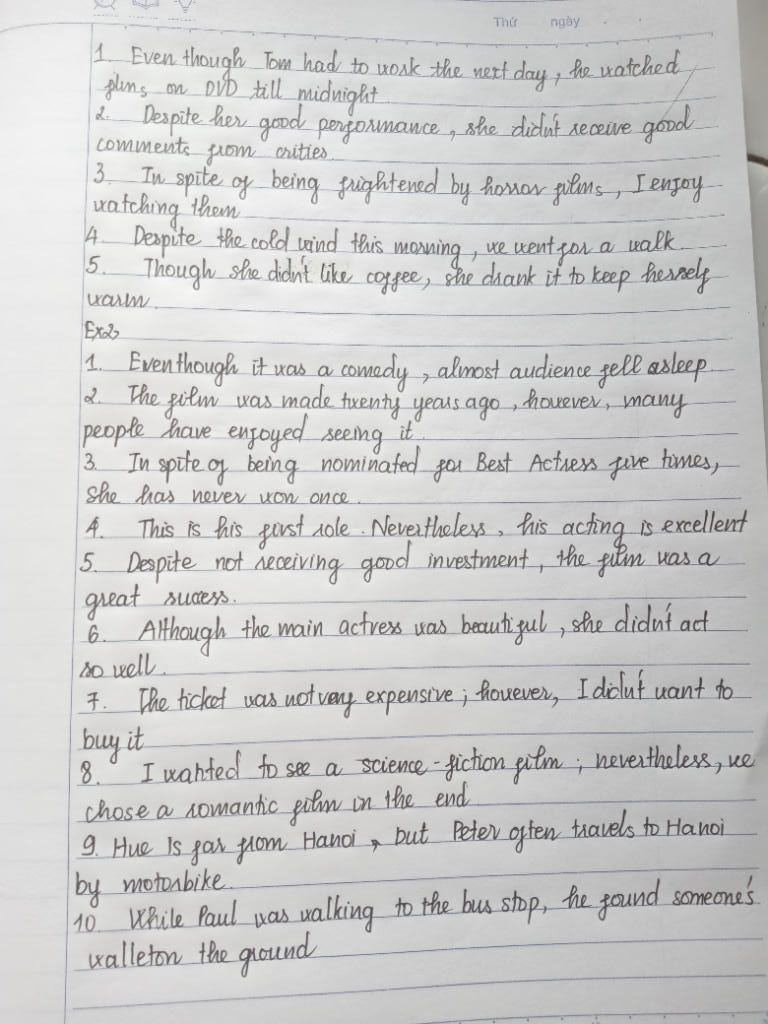 Thứ ngày
1. Even though Tom had to work the next day, he watched
films on DVD till midnight
2. Despite her good performance, she didn't receive good
comments from crities.
3. In spite of being frightened by horror films, I enjoy
watching them
4. Despite the cold wind this morning, we went for a walk.
5. Though she didn't like coffee, she drank it to keep herself
warm.
Ex2,
1. Eventhough it was a comedy, almost audience fell asleep.
2. The film was made twenty years ago, however, many
people have enjoyed seeing it.
3. In spite of being nominated for Best Actress five times,
she has never won once.
4. This is his first role. Nevertheless, his acting is excellent
5. Despite not receiving good investment, the film was a
great sucess.
6. Although the main actress was beautiful, she didn't act
so well.
7. The ticket was not very expensive; however, I didn't want to
buy it
8. I wanted to see a science-fiction film; nevertheless, we
chose a romantic film in the end
9. Hue Is far from Hanoi, but Peter often travels to Hanoi
by motorbike.
10. While Paul was walking to the bus stop, he found someone's
walleton the ground